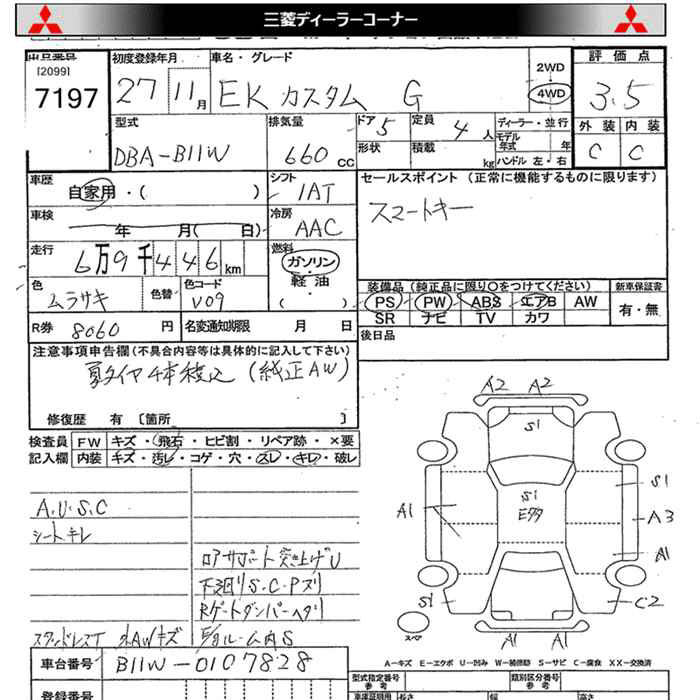 三菱ディーラーコーナー
出品番号
[2099]
7197
初度登録年月
27 11月
車名・グレード
EK カスタム G
2WD
4WD
評価点
3.5
外装 内装
C C
型式
DBA-B11W
排気量
660 cc
ドア 5
形状
定員 4 人
積載 kg
ディーラー・並行
モデル年式 年
ハンドル 左・右
車歴
自家用・( )
シフト
IAT
セールスポイント (正常に機能するものに限ります)
スマートキー
車検
年 月( 日)
冷房
AAC
走行
6万9千446km
燃料
ガソリン
軽油
( )
色
ムラサキ
色替
色コード
V09
装備品(純正品に限り○をつけてください)
新車保証書
PS PW ABS エアB AW
SR ナビ TV カワ
有・無
R券 8060 円
名変通知期限 月 日
後日品
注意事項申告欄(不具合内容等は具体的に記入して下さい)
夏タイヤ4本積込 (純正AW)
修復歴 有 [箇所 ]
検査員
記入欄
FW キズ・飛石・ヒビ割・リペア跡・×要
内装 キズ・汚レ・コゲ・穴・スレ・キレ・破レ
A.U.S.C
シートキレ
ロアサポート突き上げU
下廻りS.C.Pズリ
Rゲートダンパーヘタリ
スタッドレスT 社外AWキズ
A2 A2
S1
S1
E多
A1
S1
A3
A1
S1
C2
A1 A1
スペア
A-キズ E-エクボ U-凹み W-補修跡 S-サビ C-腐食 XX-交換済
車台番号 B11W-0107828
登録番号
型式指定番号
参考
類別区分番号
参考
車庫証明用
長さ
幅
高さ